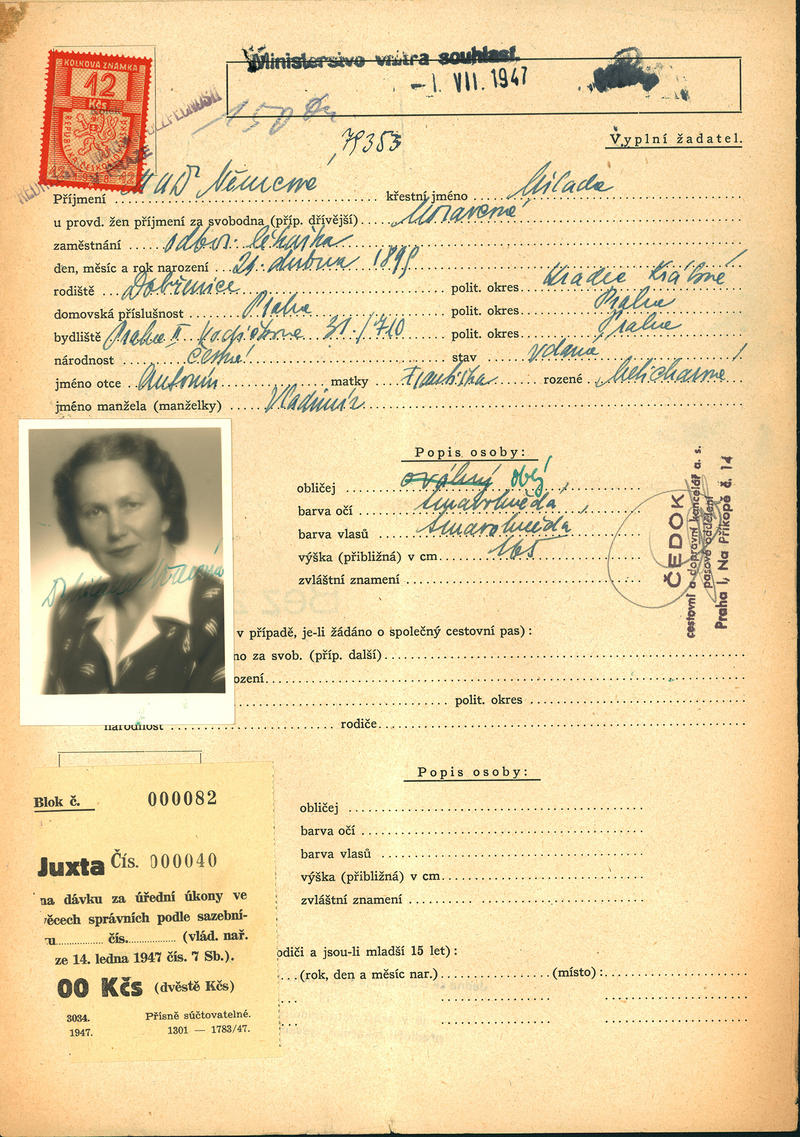 Ministerstvo vnitra souhlasí.
- 1. VII. 1947
KOLKOVÁ ZNÁMKA
12
Kčs
150
79353
Vyplní žadatel.
Příjmení MUDr Němcová křestní jméno Milada
u provd. žen příjmení za svobodna (příp. dřívější) Moravcová
zaměstnání odbor. lékařka
den, měsíc a rok narození 21. dubna 1899
rodiště Dobřenice polit. okres Hradec Králové
domovská příslušnost Praha polit. okres Praha
bydliště Praha II Vodičkova 31/710 polit. okres Praha
národnost česká stav vdaná
jméno otce Antonín matky Františka rozené Melicharové
jméno manžela (manželky) Vladimír
Popis osoby:
obličej oválný oblý
barva očí tmavohnědá
barva vlasů tmavohnědá
výška (přibližná) v cm 165
zvláštní znamení
ČEDOK
cestovní a dopravní kancelář a. s.
pasové oddělení
Praha I, Na Příkopě č. 14
v případě, je-li žádáno o společný cestovní pas):
no za svob. (příp. další)
ození
polit. okres
národnost rodiče
Popis osoby:
obličej
barva očí
barva vlasů
výška (přibližná) v cm
zvláštní znamení
Blok č. 000082
Juxta Čís. 000040
na dávku za úřední úkony ve
věcech správních podle sazební-
u čís. (vlád. nař.
ze 14. ledna 1947 čís. 7 Sb.).
00 Kčs (dvěstě Kčs)
3034. Přísně súčtovatelné.
1947. 1301 — 1783/47.
odiči a jsou-li mladší 15 let):
(rok, den a měsíc nar.) (místo):